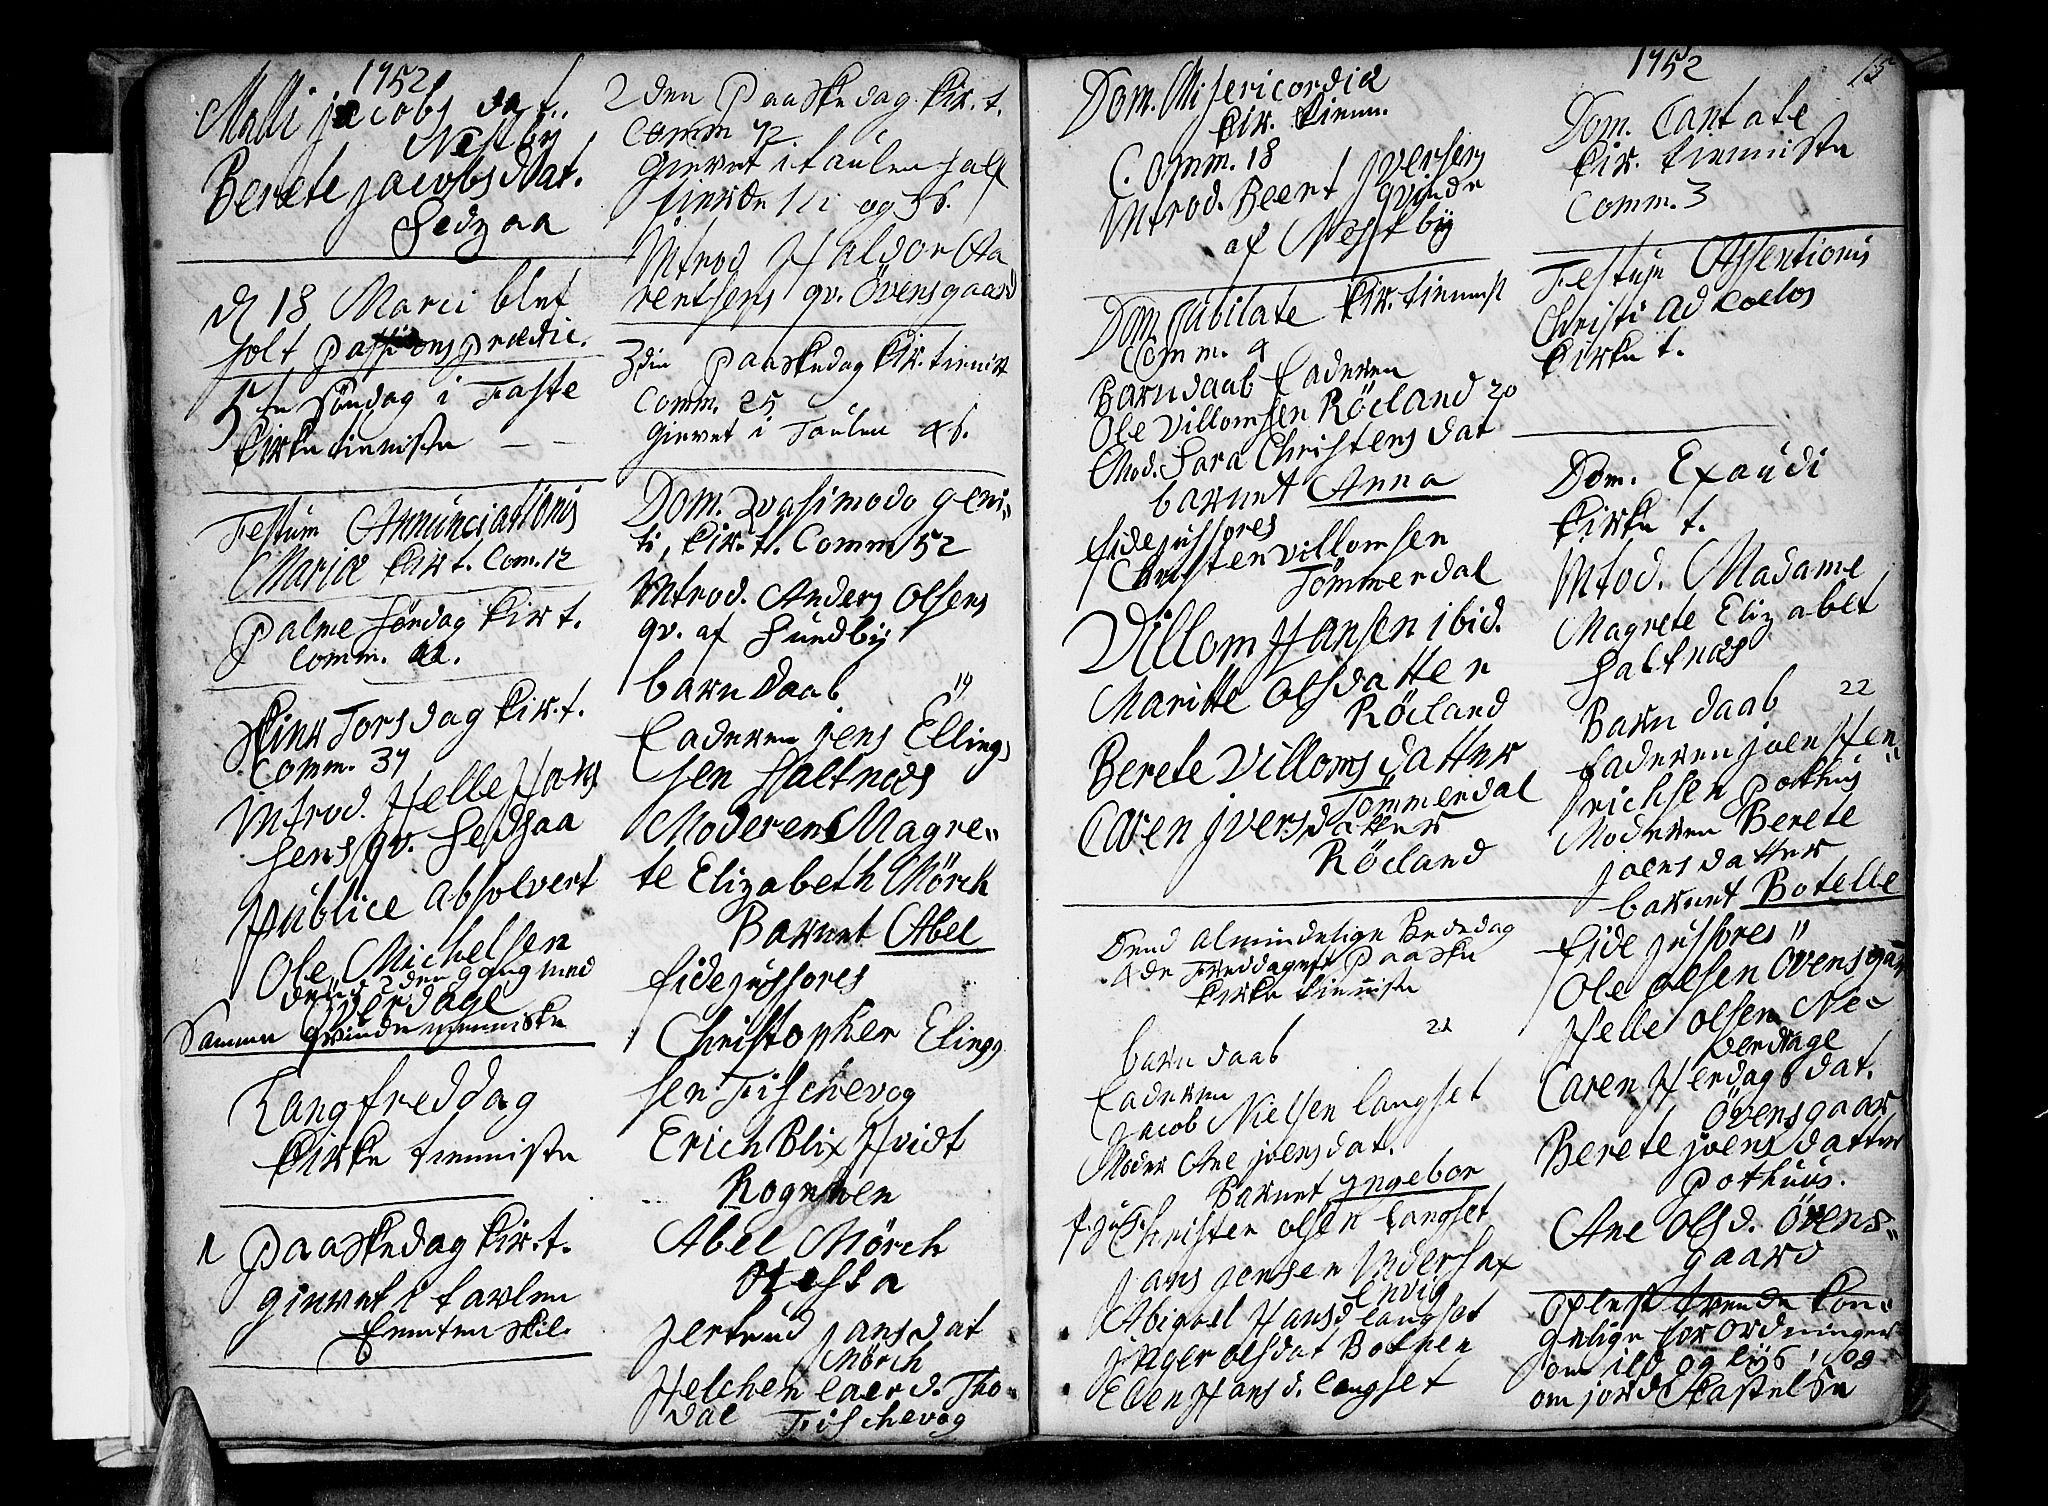 1752
Malli Jacobs dat.
Nestby
Berete Jacobs dat.
Sedzaa
d 18 Marci blef
holt passions prædic.
5te Søndag i Faste
Kirketienniste
Festum Annunciationis
Mariæ Kirt. Com. 12
Palme Søndag Kir t.
Comm. 22.
Skier Torsdag Kir. t.
Comm. 37
Introd. Helle Hans
sens qv. Sedzaa
publice absolvert
Ole Michelsen
2den gang med
Samme Qvinde menniske
Langfreddag
Kirke tienniste
1 Paaskedag Kir. t.
gievet i tavlen
femten skil.
2den Paaskedag Kir. t.
Comm 72
gievet i taulen half
fierde og 3 s.
Introd Haldor Aa
rentsens qv. Övensgaard
3die Paaskedag Kir. tienist
Comm. 25
gievet i Taulen 4 s.
Dom. Qvasimodo geni„
ti, Kir. t. Comm 52
Introd. Anders Olsens
qv. af Sundby
barn daab 19
Faderen Jens Ellings
sen Saltnæs
Moderen Magre„
te Elizabeth Mörch
Barnet Abel
fidejussores
Christopher Elings
sen Fischevog
Erich Blix Hvidt
Rognhven
Abel Mörch
Jertrud Jansdat
Mörch
Helchen Laerd. Tho
dal Fischevog
Dom. Misericordia
Kir. tienn.
Comm. 18
Introd. Beert Iversens
qvinde
af Nestby
Dom. Jubilate Kir. tiennist
Comm. 4
Barndaab Faderen
Ole Villomsen Röcland 20
Mod. Sara Christens dat
barnet Anna
fidejussores
Christen Villomsen
Tömmerdal
Villom Hansen ibid.
Maritte Olsdatter
Röcland
Berete Villoms datter
Tömmerdal
Caren Iversdatter
Röcland
Dend almindelige Bededag
4de freddag eft Paaske
Kirke tienniste
barn daab 21
Faderen
Jacob Nielsen Langset
Moder Ane Joensdat.
Barnet Ingebor
f.jus. Christen Olsen Langset
Jans Jensen Indersax
Envig
Abigael Hansd Langset
Inger Olsdat Botnen
Elen Hansd. Langset
1752
15
Dom. Cantate
Kir. tienniste
Comm. 3
Festum Assentionis
Christi ad coelos
Kirke t.
Dom. Exaudi
Kirke t.
Introd. Madame
Magrete Elizabet
Saltnæs
Barn daab 22
Faderen Joen Hen„
richsen Pothus
Moderen Berete
Joensdatter
barnet Botelle
fidejussores
Ole Olsen Övensgaar
Helle Olsen Ne„
verdage
Caren Herdags dat.
Övensgaar
Berete Joens datter
Pothuus.
Ane Olsd. Övens„
gaard
Oplest trende Kon„
gelige forordninger
om ild og lys, og
om jord Kastelse